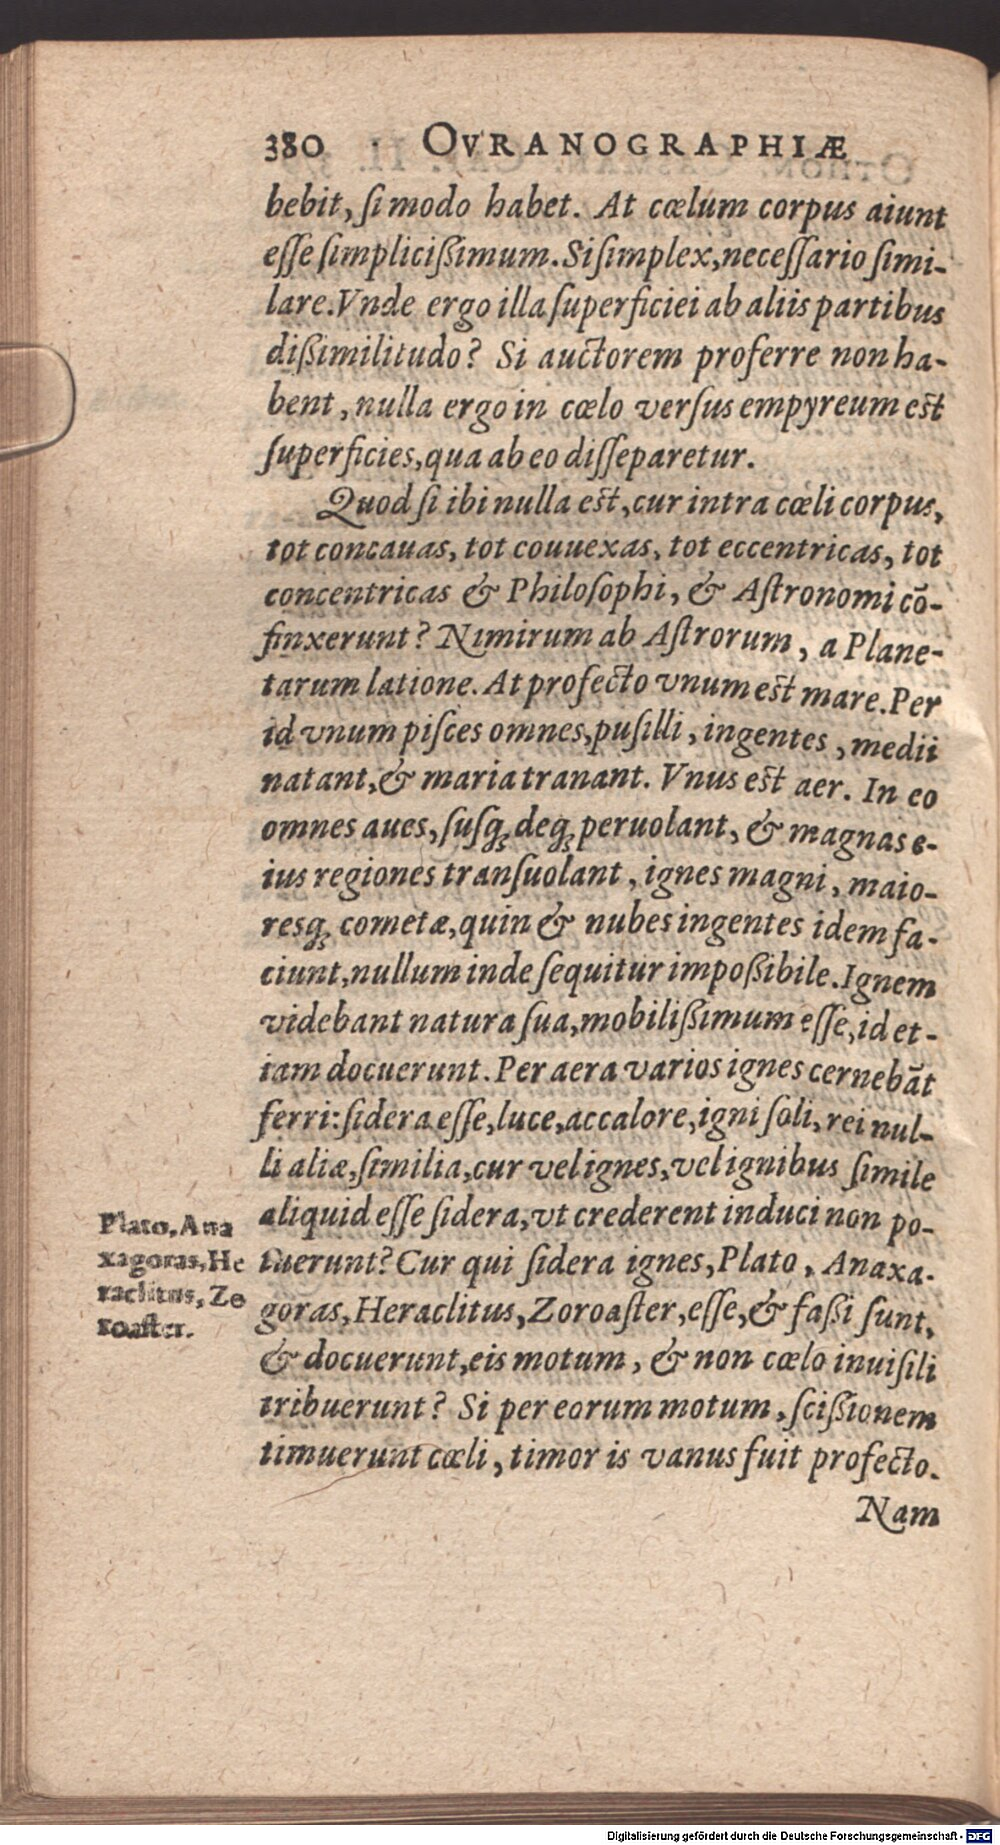 380 OVRANOGRAPHIÆ
bebit, ſi modo habet. At cœlum corpus aiunt
eſſe ſimpliciſsimum. Si ſimplex, neceſſario ſimi-
lare. Vnde ergo illa ſuperficiei ab aliis partibus
diſsimilitudo? Si auctorem proferre non ha-
bent, nulla ergo in cœlo verſus empyreum est
ſuperficies, qua ab eo diſſeparetur.
Quod ſi ibi nulla est, cur intra cœli corpus,
tot concauas, tot couuexas, tot eccentricas, tot
concentricas & Philoſophi, & Aſtronomi cō-
finxerunt? Nimirum ab Aſtrorum, a Plane-
tarum latione. At profecto vnum est mare. Per
id vnum piſces omnes, puſilli, ingentes, medii
natant, & maria tranant. Vnus est aer. In eo
omnes aues, ſuſq; deq; peruolant, & magnas e-
ius regiones tranſuolant, ignes magni, maio-
resq; cometæ, quin & nubes ingentes idem fa-
ciunt, nullum inde ſequitur impoſsibile. Ignem
videbant natura ſua, mobiliſsimum eſſe, id et-
iam docuerunt. Per aera varios ignes cernebāt
ferri: ſidera eſſe, luce, ac calore, igni ſoli, rei nul-
li aliæ, ſimilia, cur vel ignes, vel ignibus ſimile
aliquid eſſe ſidera, vt crederent induci non po-
tuerunt? Cur qui ſidera ignes, Plato, Anaxa-
goras, Heraclitus, Zoroaſter, eſſe, & faſsi ſunt,
& docuerunt, eis motum, & non cœlo inuiſili
tribuerunt? Si per eorum motum, ſciſsionem
timuerunt cœli, timor is vanus fuit profecto.
Nam
Plato, Ana
xagoras, He
raclitus, Zo
roaſter.
Digitalisierung gefördert durch die Deutsche Forschungsgemeinschaft - DFG